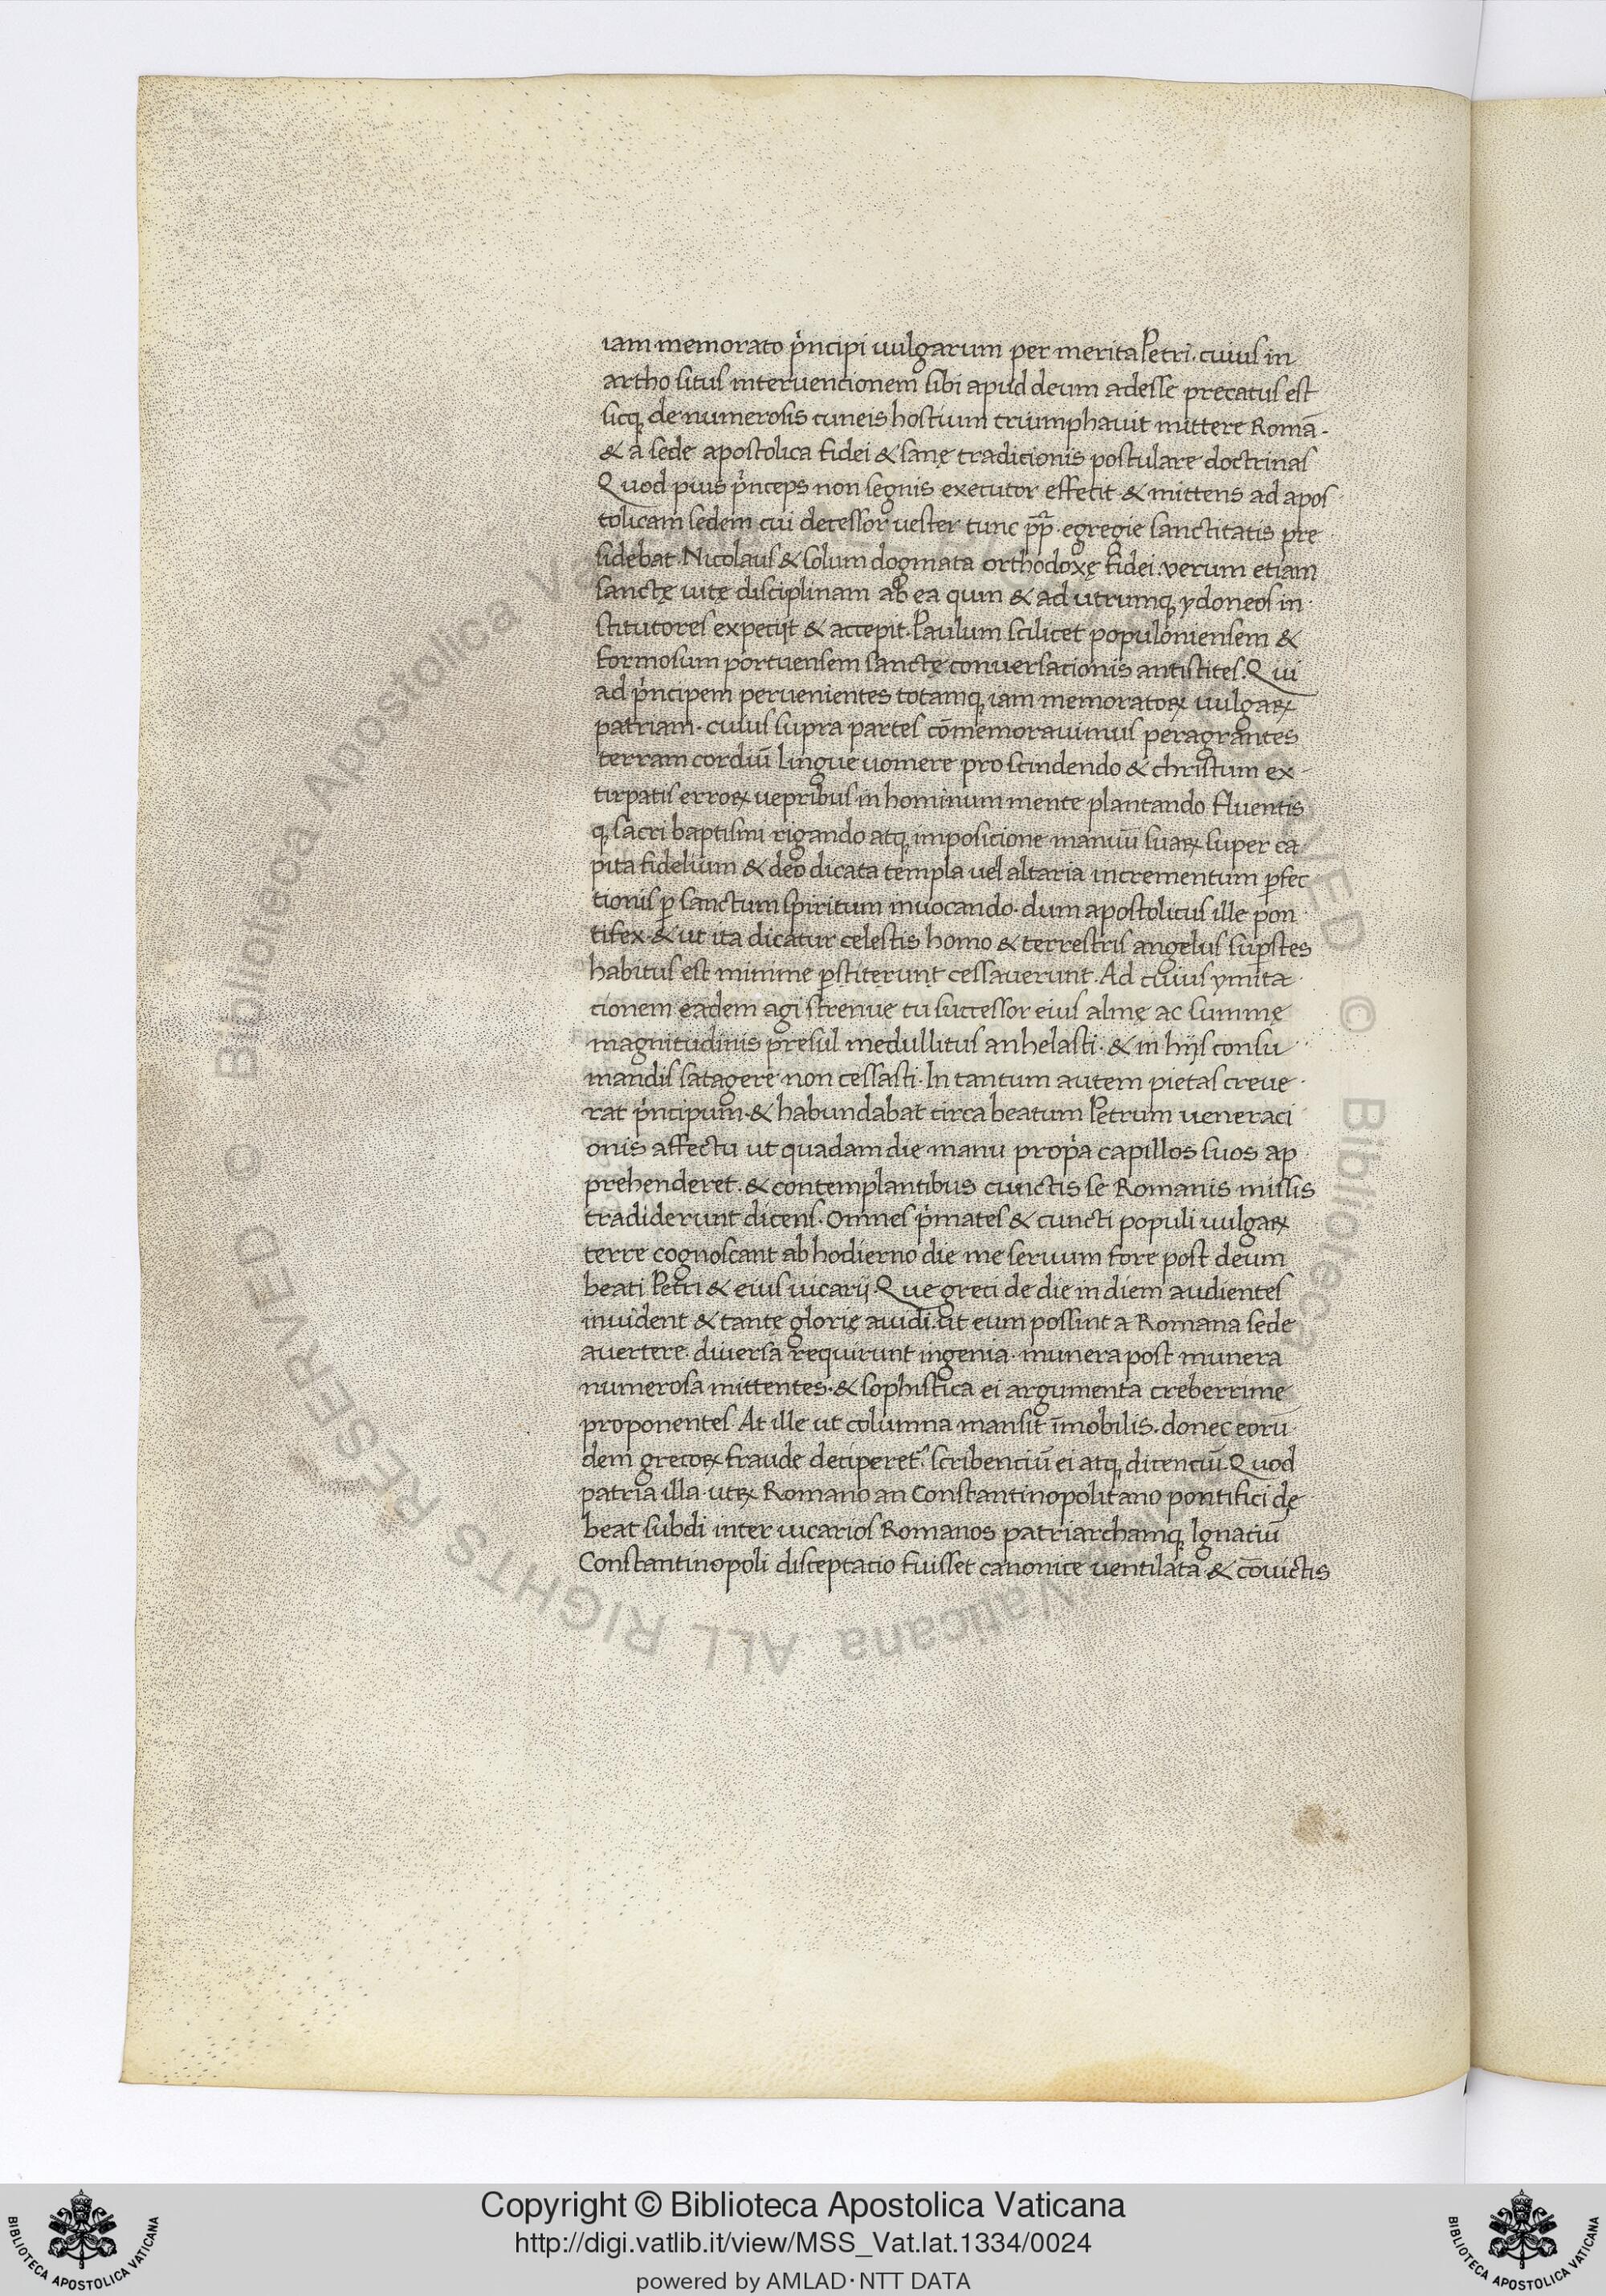 iam memorato pͥncipi uulgarum per merita Petri. cuius in
artho situs interuencionem sibi apud deum adesse precatus est
sicq; de numerosis cuneis hostium triumphauit mittere Romā.
& a sede apostolica fidei & sanę tradicionis postulare doctrinas
Quod pius pͥnceps non segnis executor effecit. & mittens ad apos
tolicam sedem cui decessor uester tunc pp̄. egregie sanctitatis pre
sidebat. Nicolaus & solum dogmata orthodoxę fidei. verum etiam
sanctę uitę disciplinam ab ea quin & ad utrumq; ydoneos in
stitutores expetijt & accepit. Paulum scilicet populoniensem &
formosum portuensem sanctę conuersacionis antistites. Qui
ad pͥncipem peruenientes totamq; iam memoratoꝝ uulgaꝝ
patriam. cuius supra partes cōmemorauimus peragrantes
terram cordiū lingue uomere pro scindendo & christum ex
tirpatis erroꝝ uepribus in hominum mente plantando fluentis
q; sacri baptismi rigando atq; imposicione manuū suaꝝ super ca
pita fidelium & deo dicata templa uel altaria incrementum ꝑfec
tionis ꝑ sanctum spiritum inuocando. dum apostolicus ille pon
tifex. & ut ita dicatur celestis homo & terrestris angelus suꝑstes
habitus est minime p̄stiterunt cessauerunt. Ad cuius ymita
cionem eadem agi strenue tu successor eius almę ac summę
magnitudinis presul medullitus anhelasti. & in hijs consu
mandis satagere non cessasti. In tantum autem pietas creue
rat pͥncipum. & habundabat circa beatum Petrum ueneraci
onis affectu ut quadam die manu propͥa capillos suos ap
prehenderet. & contemplantibus cunctis se Romanis missis
tradiderunt dicens. Omnes pͥmates & cuncti populi uulgaꝝ
terre cognoscant ab hodierno die me seruum fore post deum
beati Petri & eius uicarij. Que greci de die in diem audientes
inuident & tantę glorię auidi. ut eum possint a Romana sede
auertere. diuersa requirunt ingenia. munera post munera
numerosa mittentes. & sophistica ei argumenta creberrime
proponentes. At ille ut columna mansit īmobilis. donec eoru
dem grecoꝝ fraude deciperet᷑. scribenciū ei atq; dicenciū. Quod
patria illa. utꝝ Romano an Constantinopolitano pontifici de
beat subdi inter uicarios Romanos patriarchamq; Ignatiū
Constantinopoli disceptacio fuisset canonice uentilata & cōuictis
Biblioteca Apostolica Vaticana ALL RIGHTS RESERVED © Biblioteca Apostolica Vaticana ALL RIGHTS RESERVED ©
Copyright © Biblioteca Apostolica Vaticana
http://digi.vatlib.it/view/MSS_Vat.lat.1334/0024
powered by AMLAD·NTT DATA
BIBLIOTECA APOSTOLICA VATICANA
BIBLIOTECA APOSTOLICA VATICANA